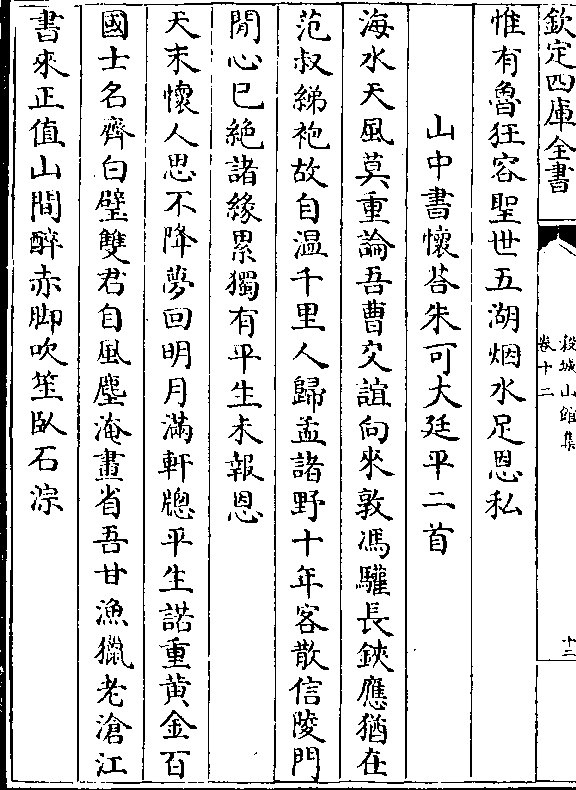 欽定四庫全書
穀城山館集
卷十二
十二
惟有魯狂容聖世五湖烟水足恩私
山中書懷荅朱可大廷平二首
海水天風莫重論吾曹交誼向來敦馮驩長鋏應猶在
范叔綈袍故自温千里人歸孟諸野十年客散信陵門
閒心已絶諸緣累獨有平生未報恩
天末懷人思不降夢回明月滿軒牕平生諾重黄金百
國士名齊白璧雙君自風塵淹畫省吾甘漁獵老滄江
書來正值山間醉赤脚吹笙臥石淙